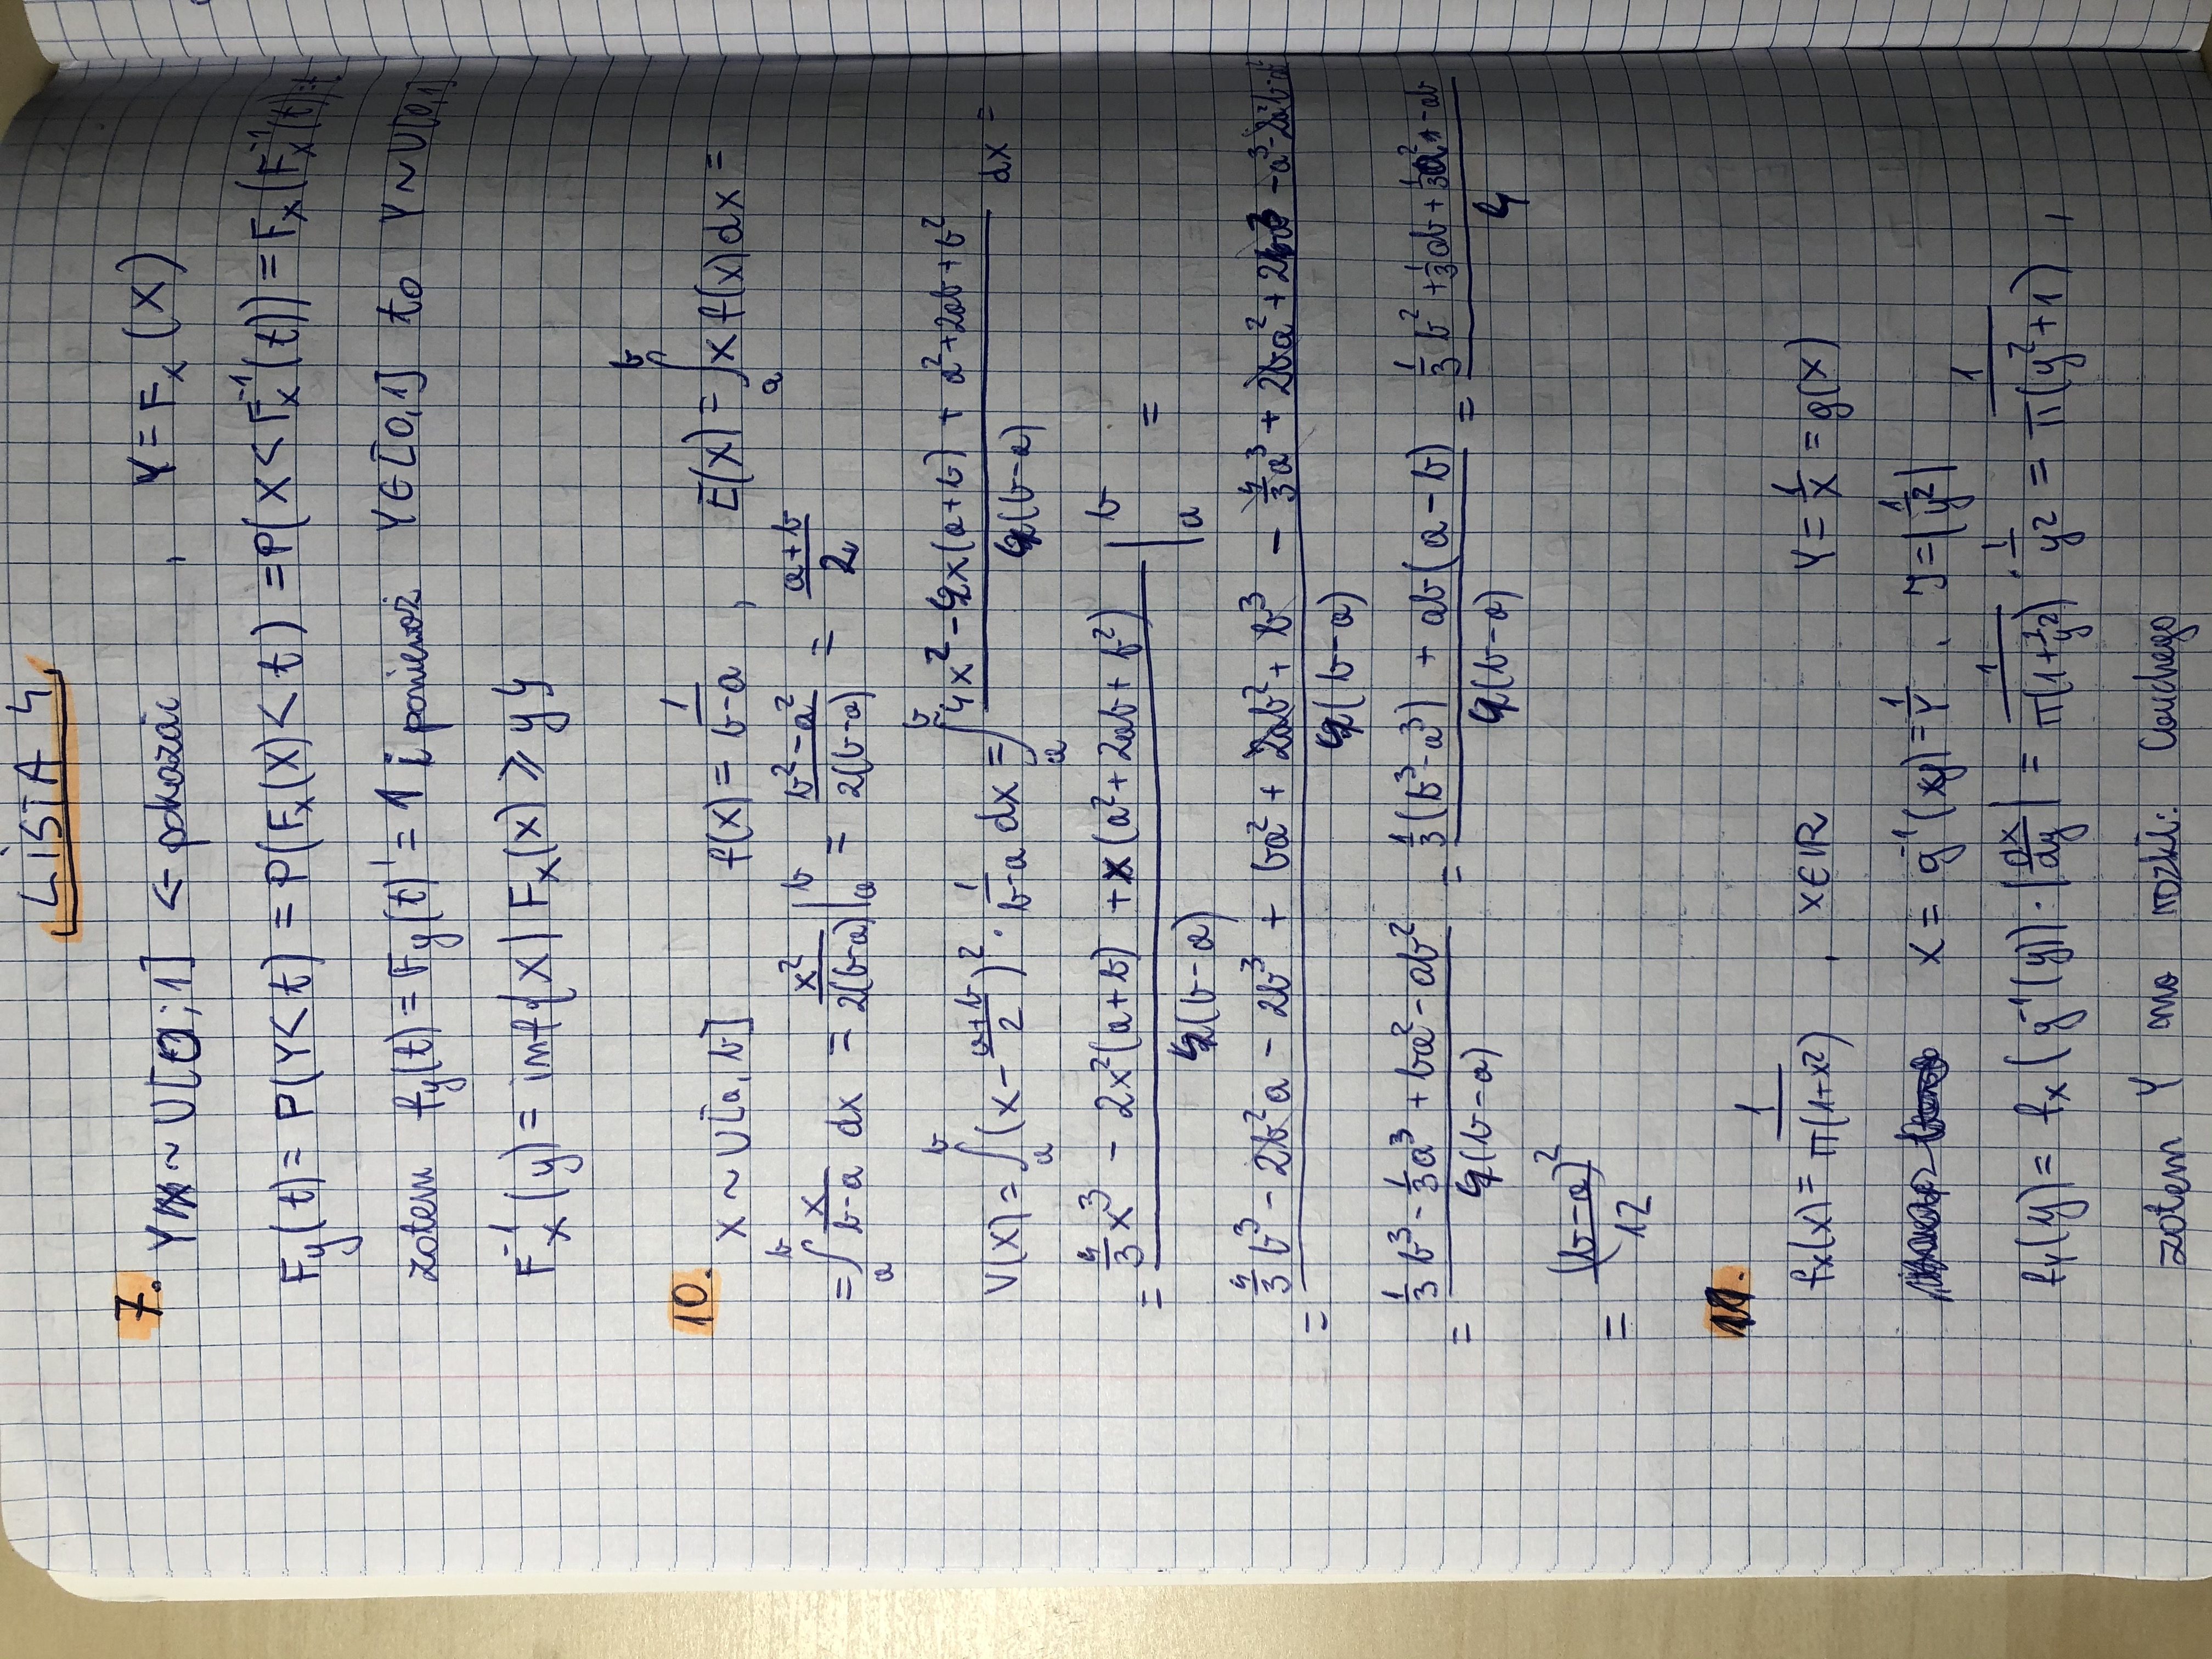 LISTA 4
7. Y ~ U[0; 1] ← pokazać , Y = F_x (X)
F_y(t) = P(Y < t) = P(F_x(X) < t) = P(X < F_x^{-1}(t)) = F_x(F_x^{-1}(t)) = t
zatem f_y(t) = F_y(t)' = 1 i ponieważ Y ∈ [0,1] to Y ~ U[0,1]
F_x^{-1}(y) = inf{x | F_x(x) ≥ y}
10. X ~ U[a, b] f(x) = \frac{1}{b-a} , E(X) = ∫_a^b x f(x) dx =
= ∫_a^b \frac{x}{b-a} dx = \frac{x^2}{2(b-a)} |_a^b = \frac{b^2-a^2}{2(b-a)} = \frac{a+b}{2}
V(X) = ∫_a^b (x - \frac{a+b}{2})^2 · \frac{1}{b-a} dx = ∫_a^b \frac{4x^2 - 4x(a+b) + a^2+2ab+b^2}{4(b-a)} dx =
= \frac{\frac{4}{3}x^3 - 2x^2(a+b) + x(a^2+2ab+b^2)}{4(b-a)} |_a^b =
= \frac{\frac{4}{3}b^3 - 2b^2a - 2b^3 + ba^2 + 2ab^2 + b^3 - \frac{4}{3}a^3 + 2ba^2 + 2a^3 - a^3 - 2a^2b - ab^2}{4(b-a)}
= \frac{\frac{1}{3}b^3 - \frac{1}{3}a^3 + ba^2 - ab^2}{4(b-a)} = \frac{\frac{1}{3}(b^3-a^3) + ab(a-b)}{4(b-a)} = \frac{\frac{1}{3}b^2 + \frac{1}{3}ab + \frac{1}{3}a^2 - ab}{4}
= \frac{(b-a)^2}{12}
11.
f_x(x) = \frac{1}{π(1+x^2)} , x ∈ ℝ Y = \frac{1}{X} = g(X)
X = g^{-1}(y) = \frac{1}{Y} , J = |\frac{1}{y^2}|
f_Y(y) = f_x(g^{-1}(y)) · |\frac{dx}{dy}| = \frac{1}{π(1+\frac{1}{y^2})} · \frac{1}{y^2} = \frac{1}{π(y^2+1)} ,
zatem Y ma rozkł. Cauchego